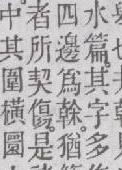 水篇。其字多
四邊爲榦。猶
者所契傷。是
中其圍橫